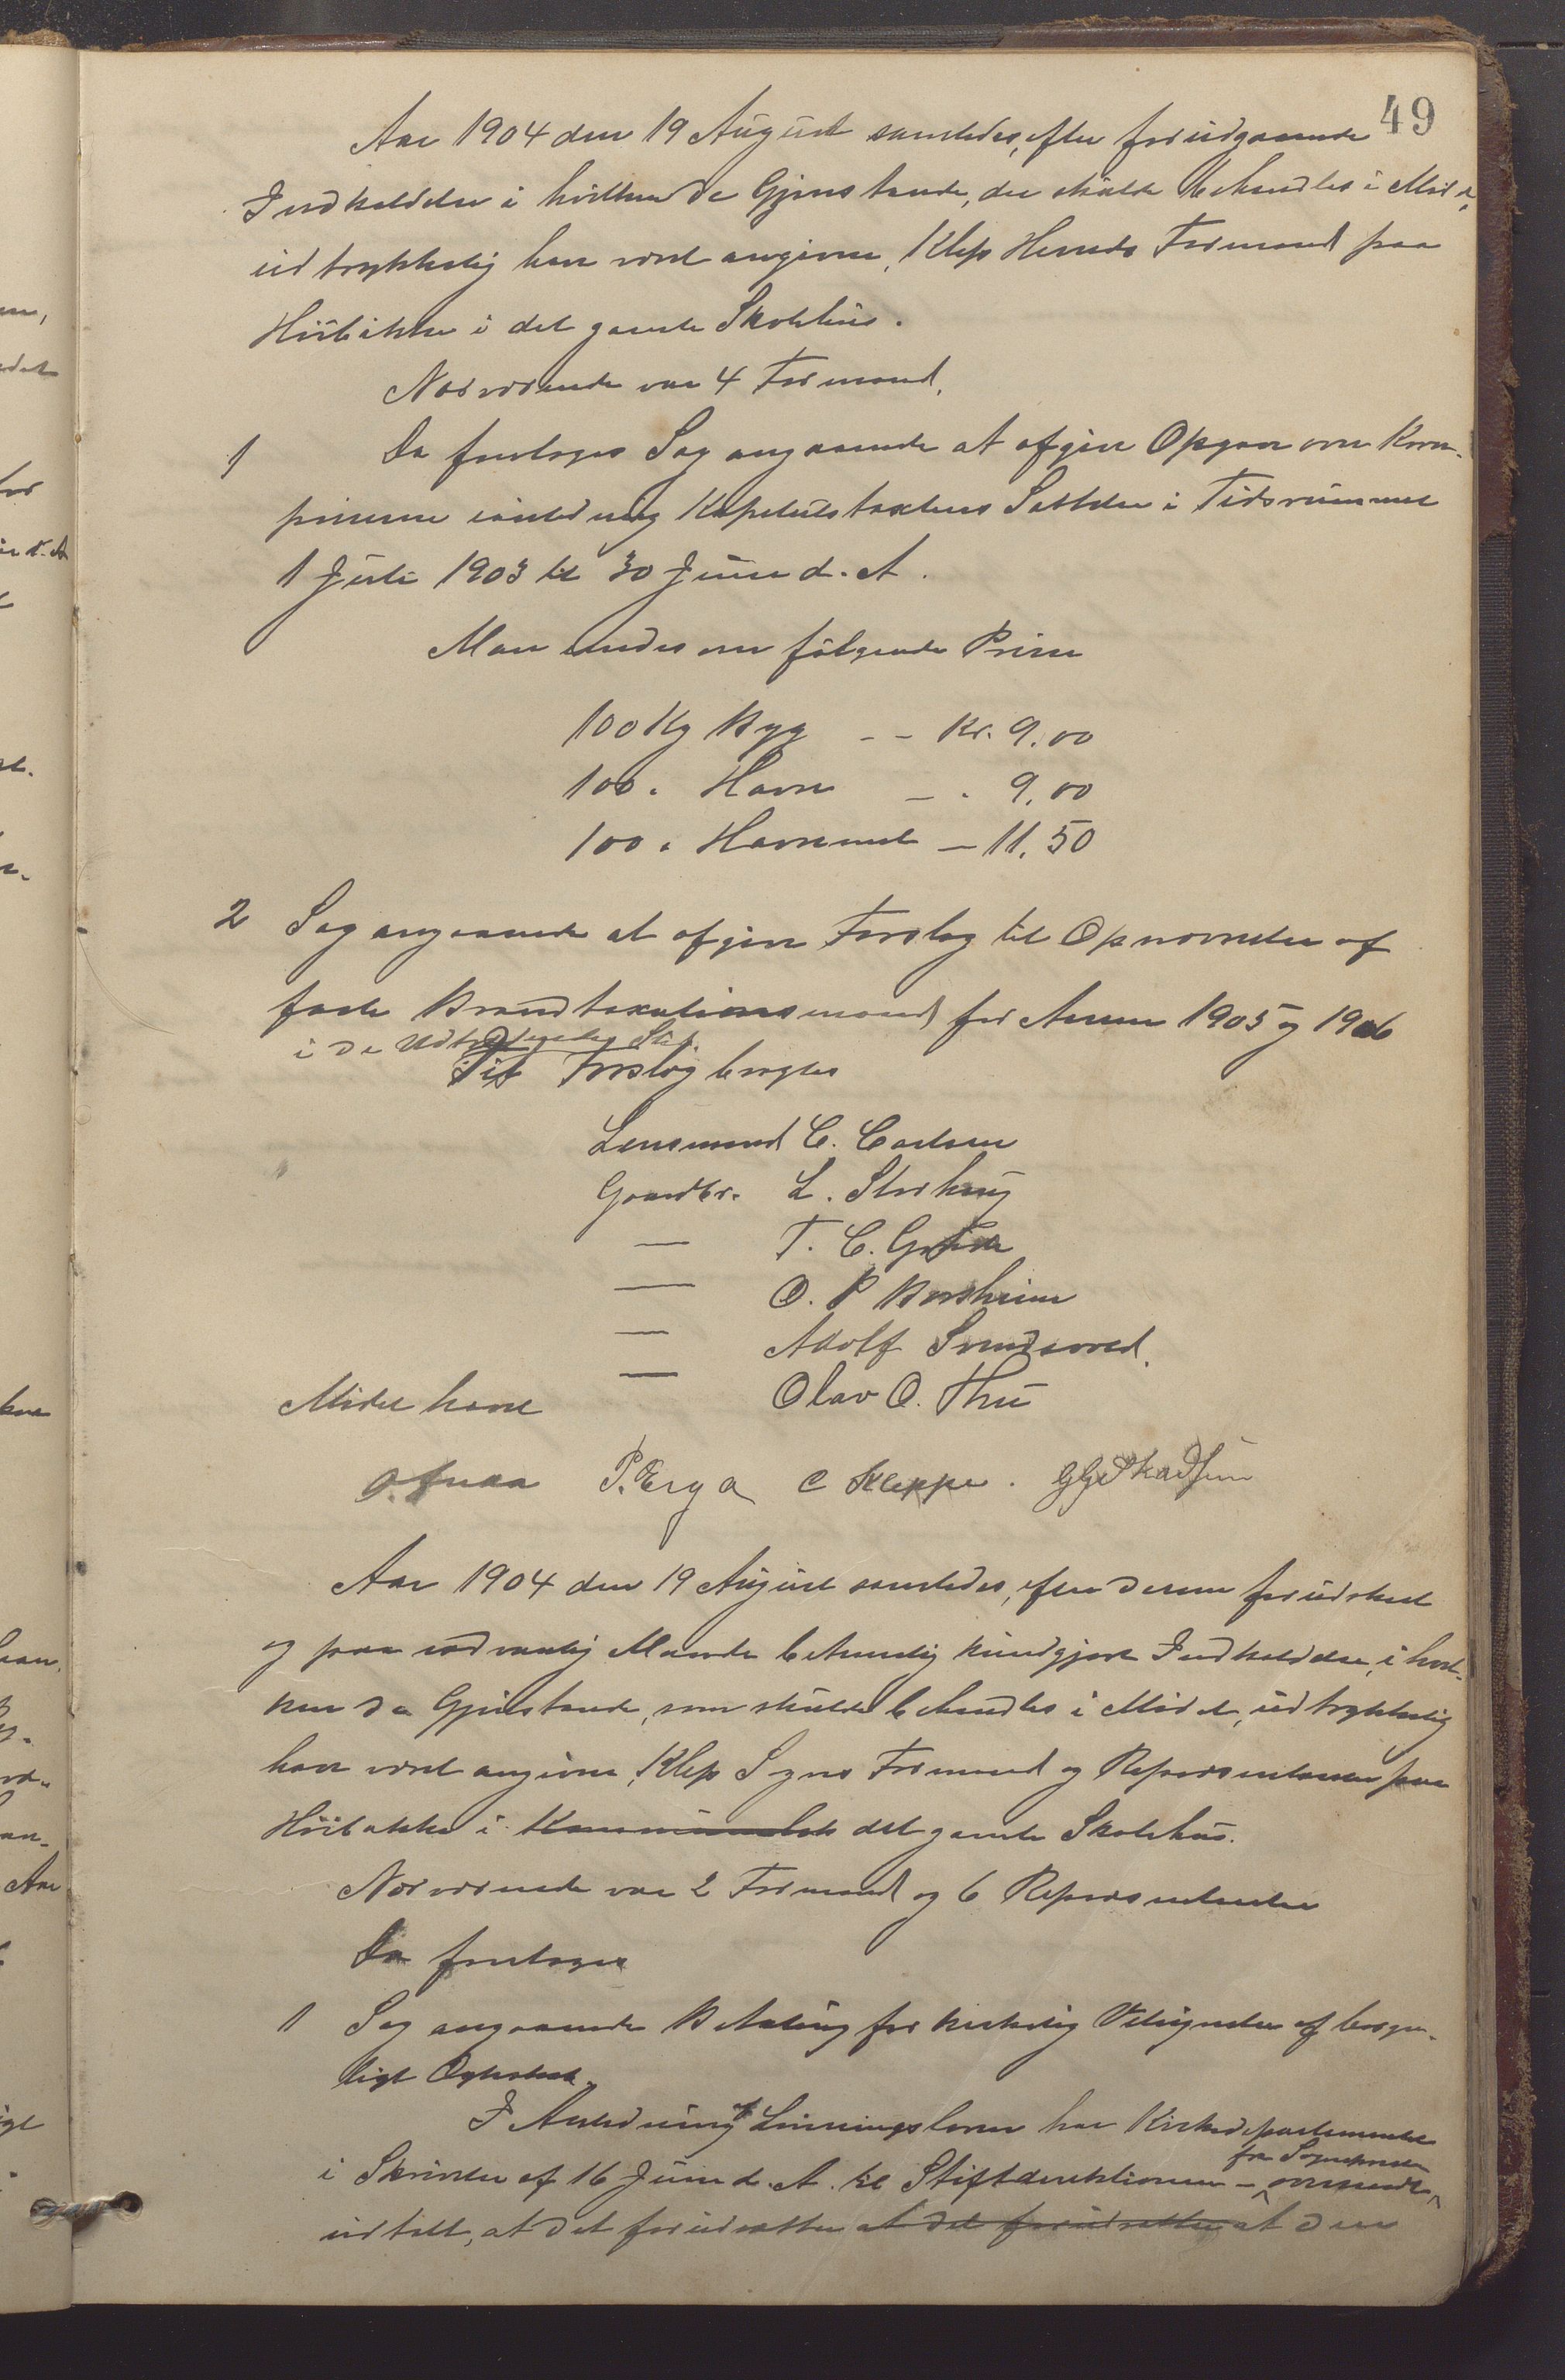 49
Aar 1904 den 19 August samledes, efter forudgaaende
Indkaldelse i hvilken de Gjenstande, der skulde behandles i Møde,
udtrykkelig have vært angivne, Klep Herreds Formænd paa
Hübakken i det gamle Skolehus.
Nærværende var 4 Formænd.
1 Da foretoges Sag angaaende at afgive Opgave over Korn-
priserne i Kapitelstaxtens Sættelse i Tidsrummet
1 Juli 1903 til 30 Juni d. A.
Man enedes om følgende Priser
100 Kg Byg - - Kr. 9.00
100 „ Havre - „ 9,00
100 „ Havremel - 11,50
2 Sag angaaende at afgive Forslag til Opnævnelse af
faste Brandtaxationsmænd for Aarene 1905 og 1906
i de
Til Forslag bragtes
Lensmand C. Carlsen
Gaardbr. L. Storhaug
— T. C. Grude
— O. P Borsheim
— Adolf
— Olav O. Thu
Mødet hævet
P. Erga C Kleppe.
Aar 1904 den 19 August samledes, efter derom forudskeet
og paa sædvanlig Maade behørig kundgjort Indkaldelse, i hvil-
ken de Gjenstande, som skulde behandles i Mødet, udtrykkelig
have vært angivne, Klep Sogns Formænd og Repræsentanter paa
Hübakken i Kommunelok det gamle Skolehus.
Nærværende var 2 Formænd og 6 Repræsentanter
Da foretoges
1 Sag angaaende Betaling for kirkelig Velsignelse af borger-
ligt Ægteskab.
I Anledning af Lønningsloven har Kirkedepartementet
i Skrivelse af 16 Juni d. A. til Stiftsdirektionen - oversendt
fra Sognepresten
udtalt, at det forudsætter at det forudsætter at den